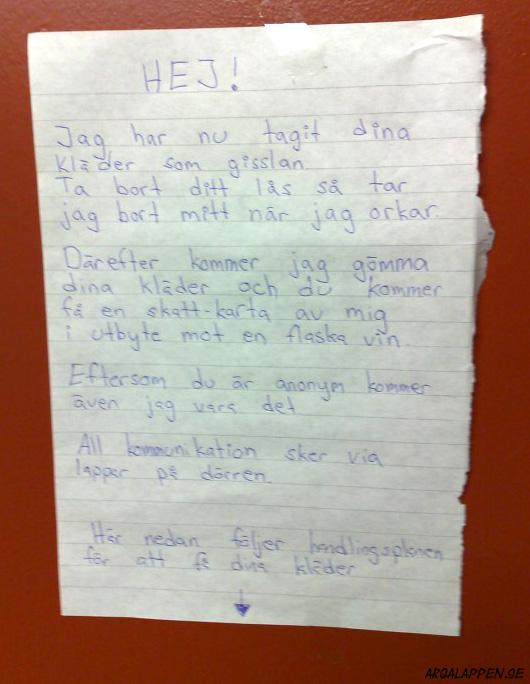 HEJ!
Jag har nu tagit dina
kläder som gisslan.
Ta bort ditt lås så tar
jag bort mitt när jag orkar.
Därefter kommer jag gömma
dina kläder och du kommer
få en skatt-karta av mig
i utbyte mot en flaska vin.
Eftersom du är anonym kommer
även jag vara det
All kommunikation sker via
lappar på dörren.
Här nedan följer handlingsplanen
för att få dina kläder
ARGALAPPEN.SE